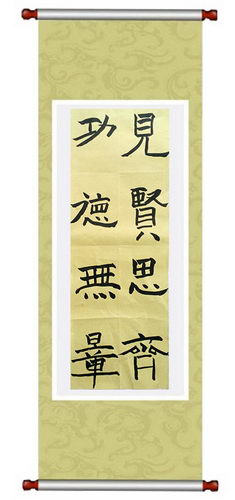 見賢思齊
功德無量